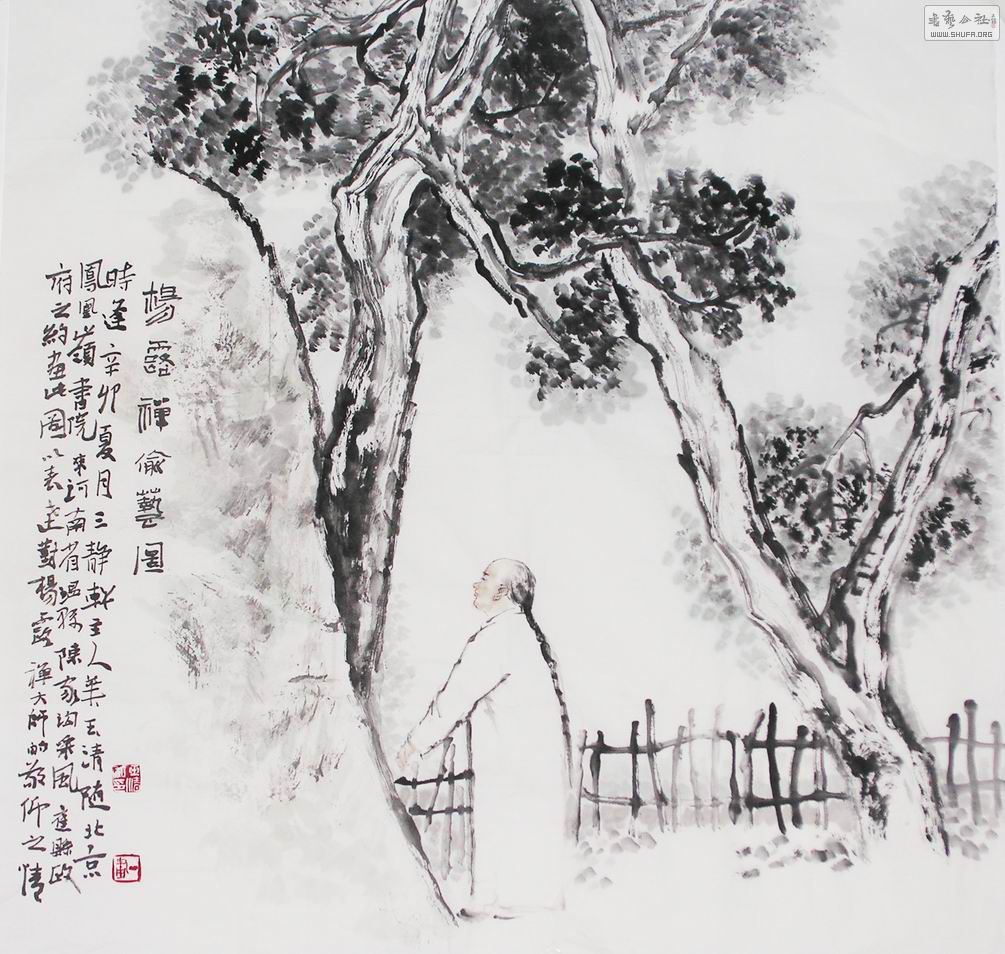 楊露禪偷藝圖
時逢辛卯夏月三靜軒主人姜玉清随北京
鳳凰嶺書院來河南省温縣陳家沟采風應縣政
府之約畫此圖以表達對楊露禪大師的敬仰之情
WWW.SHUFA.ORG